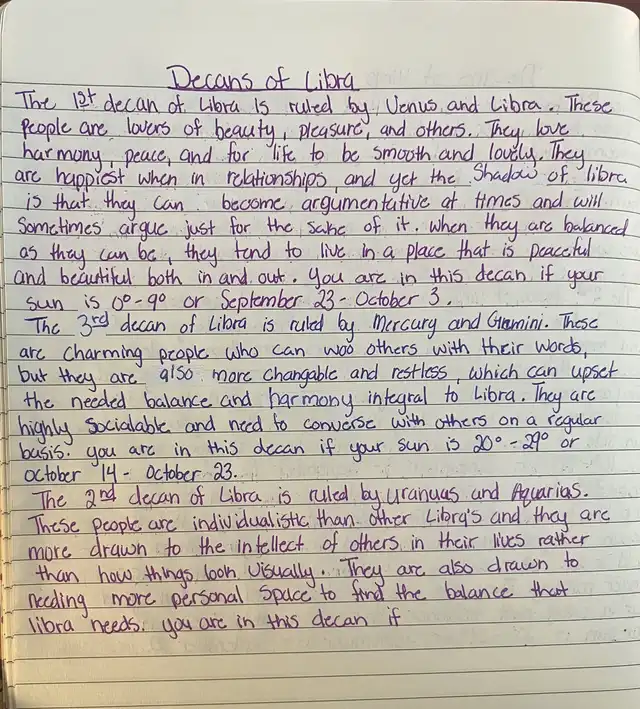 Decans of Libra
The 1st decan of Libra is ruled by Venus and Libra. These
people are lovers of beauty, pleasure, and others. They love
harmony, peace, and for life to be smooth and lovely. They
are happiest when in relationships, and yet the Shadow of libra
is that they can become argumentative at times and will
Sometimes argue just for the sake of it. When they are balanced
as they can be, they tend to live in a place that is peaceful
and beautiful both in and out. You are in this decan if your
sun is 0° - 9° or September 23 - October 3.
The 3rd decan of Libra is ruled by Mercury and Gemini. These
are charming people who can woo others with their words,
but they are also more changable and restless, which can upset
the needed balance and harmony integral to Libra. They are
highly Socialable and need to converse with others on a regular
basis. you are in this decan if your sun is 20° - 29° or
October 14 - October 23.
The 2nd decan of Libra is ruled by Uranuas and Aquarias.
These people are individualistic than other Libra's and they are
more drawn to the intellect of others in their lives rather
than how things look visually. They are also drawn to
needing more personal Space to find the balance that
libra needs. you are in this decan if